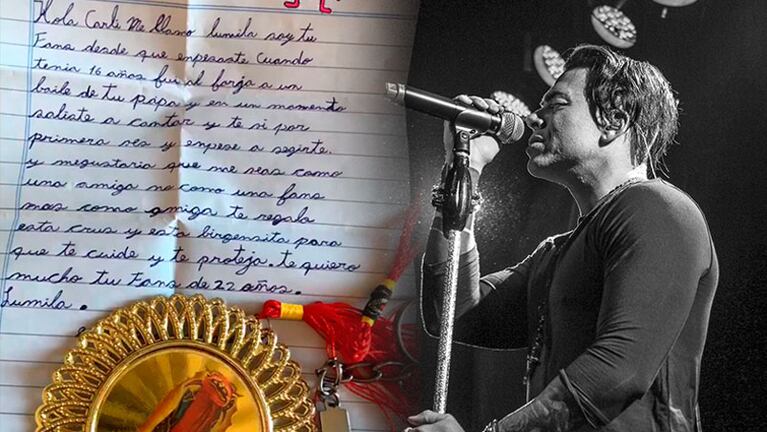 Hola Carli Me llamo lumila soy tu
Fans desde que enpesaste Cuando
tenia 16 años fui al farja a un
baile de tu papa y en un momento
saliste a cantar y te vi por
primera ves y enpese a segirte.
y megustaria que me veas como
una amiga no como una fans
mas como amiga te regala
esta crus y esta birgensita para
que te cuide y te proteja. te quiero
mucho tu Fans de 22 años.
Lumila.